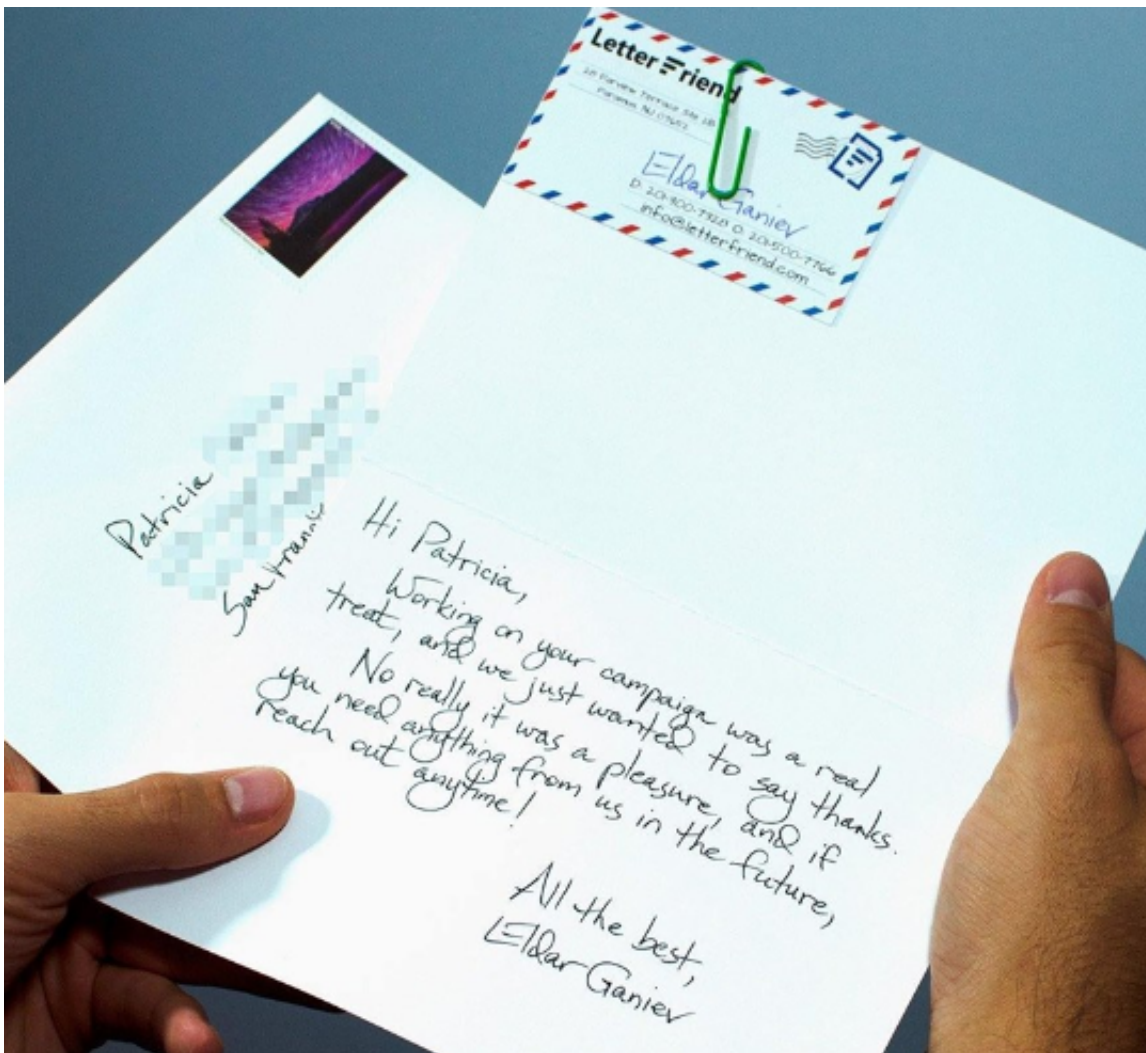 Letter Friend
Paramus, NJ 07652
Eldar Ganiev
info@letterfriend.com
Patricia
San
Hi Patricia,
Working on your campaign was a real
treat, and we just wanted to say thanks.
No really it was a pleasure, and if
you need anything from us in the future,
reach out anytime!
All the best,
Eldar Ganiev